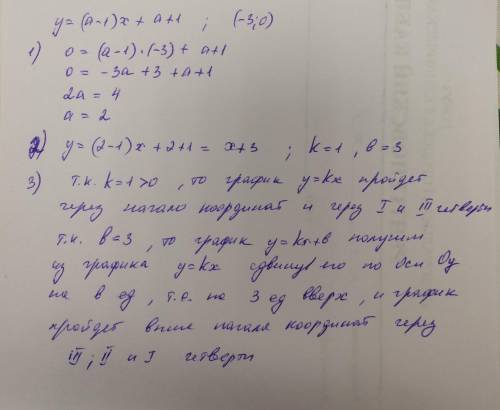 y=(a-1)x + a+1 ; (-3;0)
1) 0 = (a-1)·(-3) + a+1
0 = -3a +3 +a+1
2a = 4
a = 2
2) y=(2-1)x +2+1 = x+3 ; k=1 , в=3
3) т.к. k=1>0 , то график y=kx пройдет
через начало координат и через I и III четверти
т.к. в=3 , то график y=kx+в получим
из графика y=kx сдвинув его по оси Oy
на в ед , т.е. на 3 ед вверх , и график
пройдет выше начала координат через
III ; II и I четверти